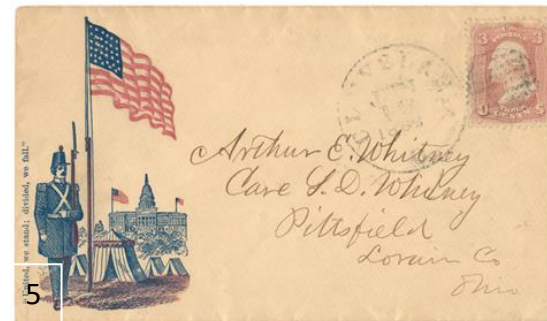 "United, we stand; divided, we fall."
Arthur E. Whitney
Care S. D. Whitney
Pittsfield
Lorain Co
Ohio
3 3
U S
5